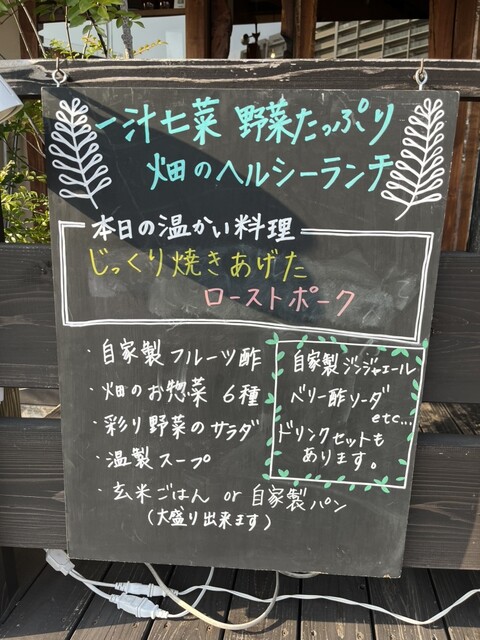 一汁七菜 野菜たっぷり
畑のヘルシーランチ
本日の温かい料理
じっくり焼きあげた
ローストポーク
・自家製フルーツ酢
・畑のお惣菜 6種
・彩り野菜のサラダ
・温製スープ
・玄米ごはん or 自家製パン
(大盛り出来ます)
自家製ジンジャエール
ベリー酢ソーダ
etc...
ドリンクセットも
あります。